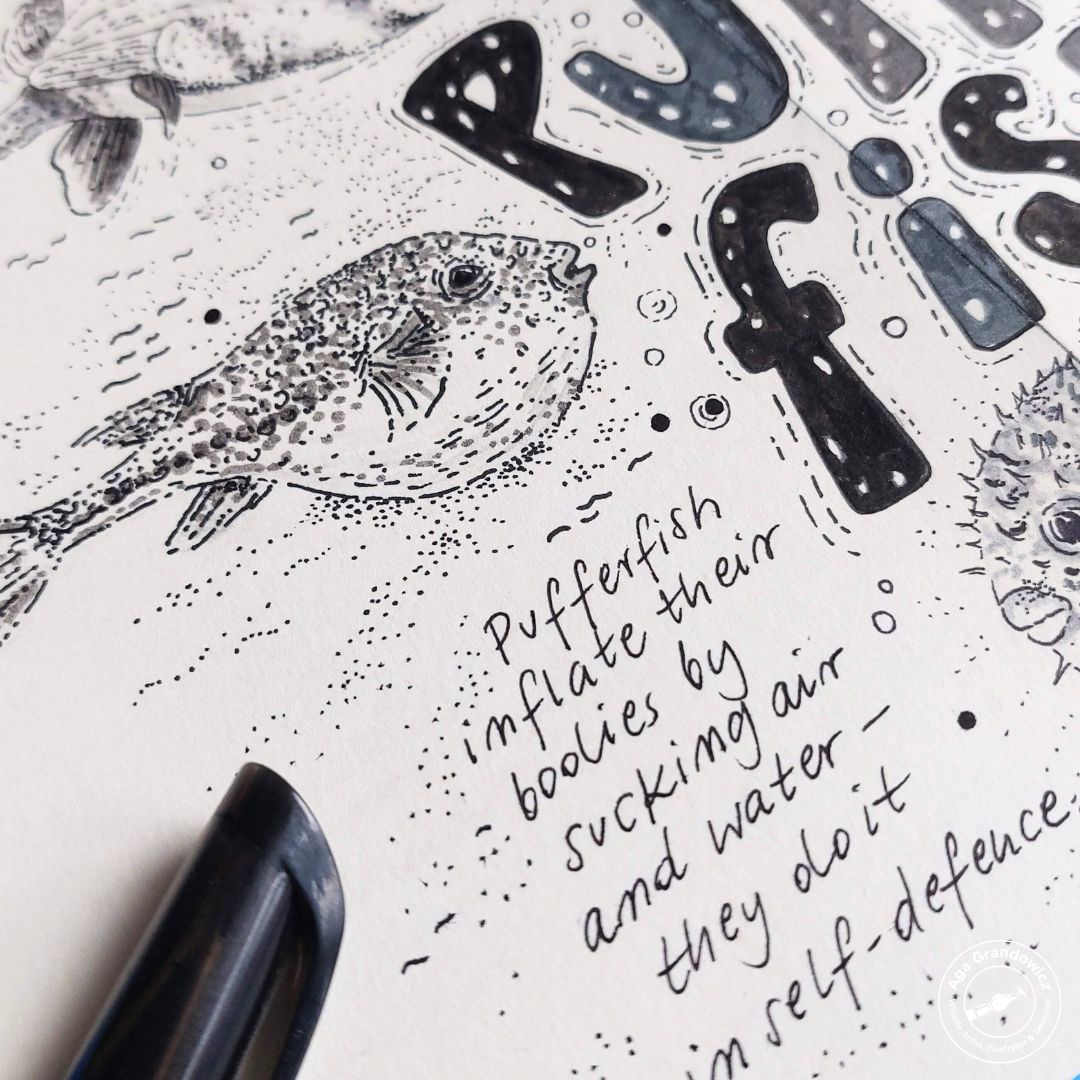 puff
fis
Pufferfish
inflate their
bodies by
sucking air
and water -
they do it
in self-defence.
Aga Grandowicz
Wildlife Artist, Illustrator & Designer